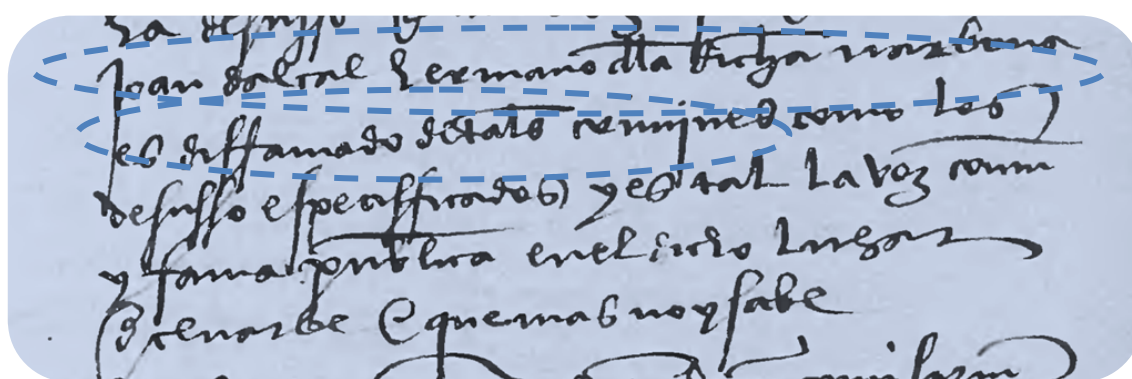 Joan dalcal hermano dla dicha narbona
es diffamado de tals crimines como los
desusso especifficados y es tal la voz comun
y fama publica en el dicho lughar
de cenarbe E que mas no y sabe